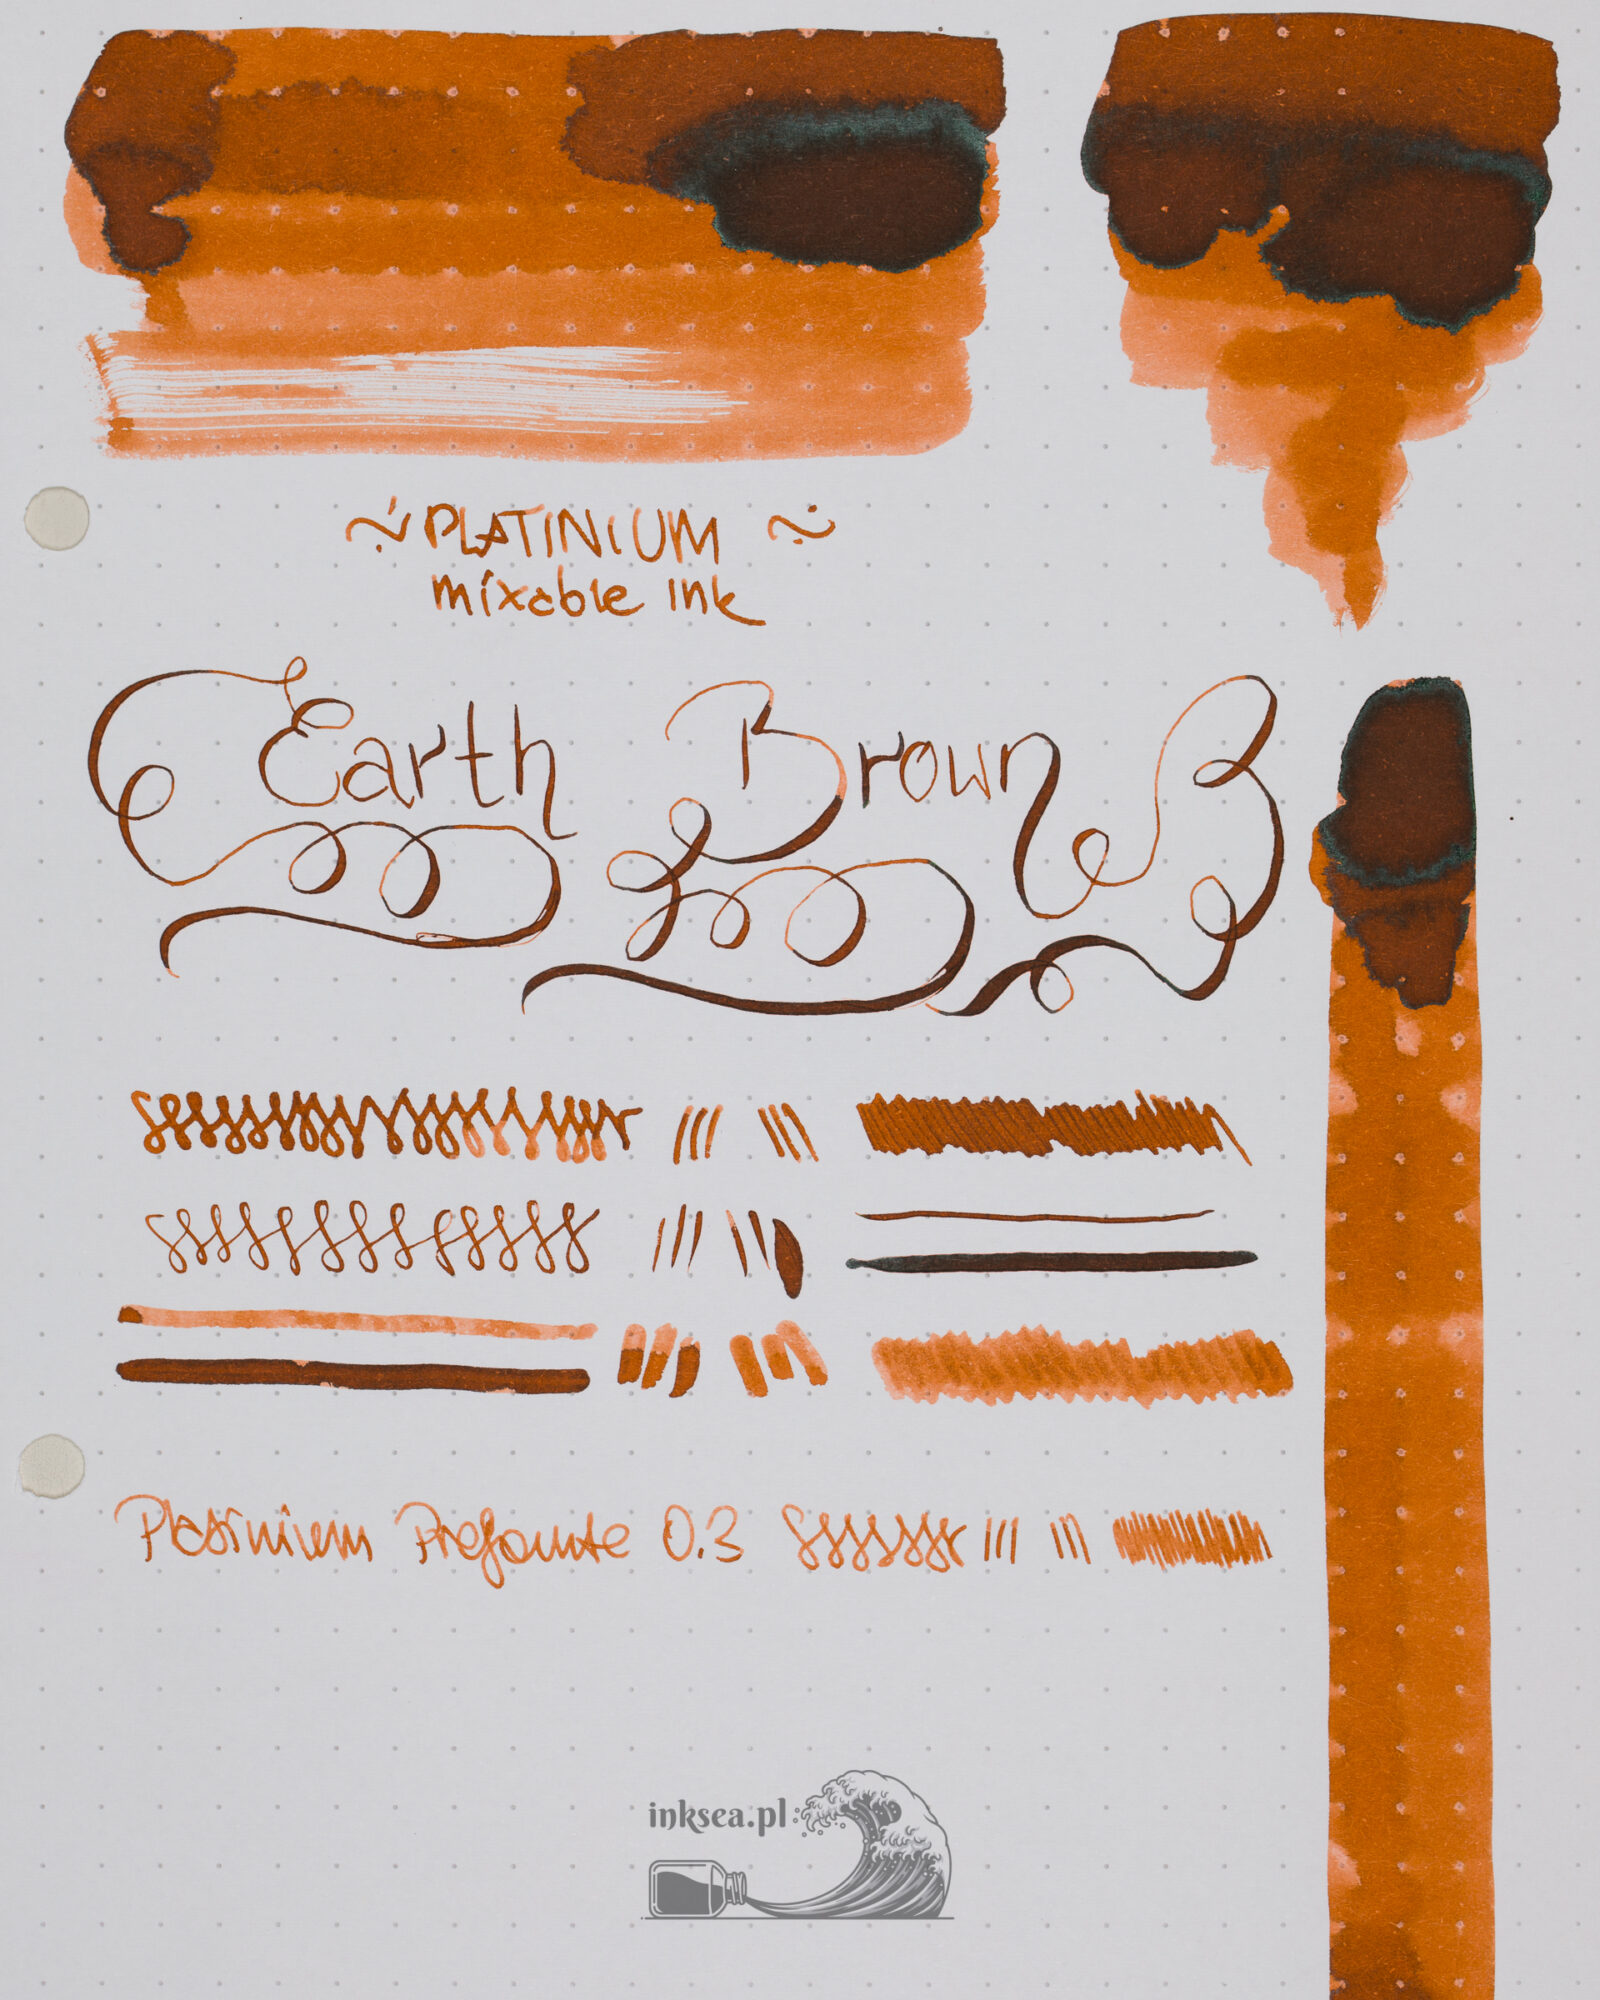 PLATINIUM
mixable ink
Earth Brown B
Platinium Prefounte 0.3
inksea.pl